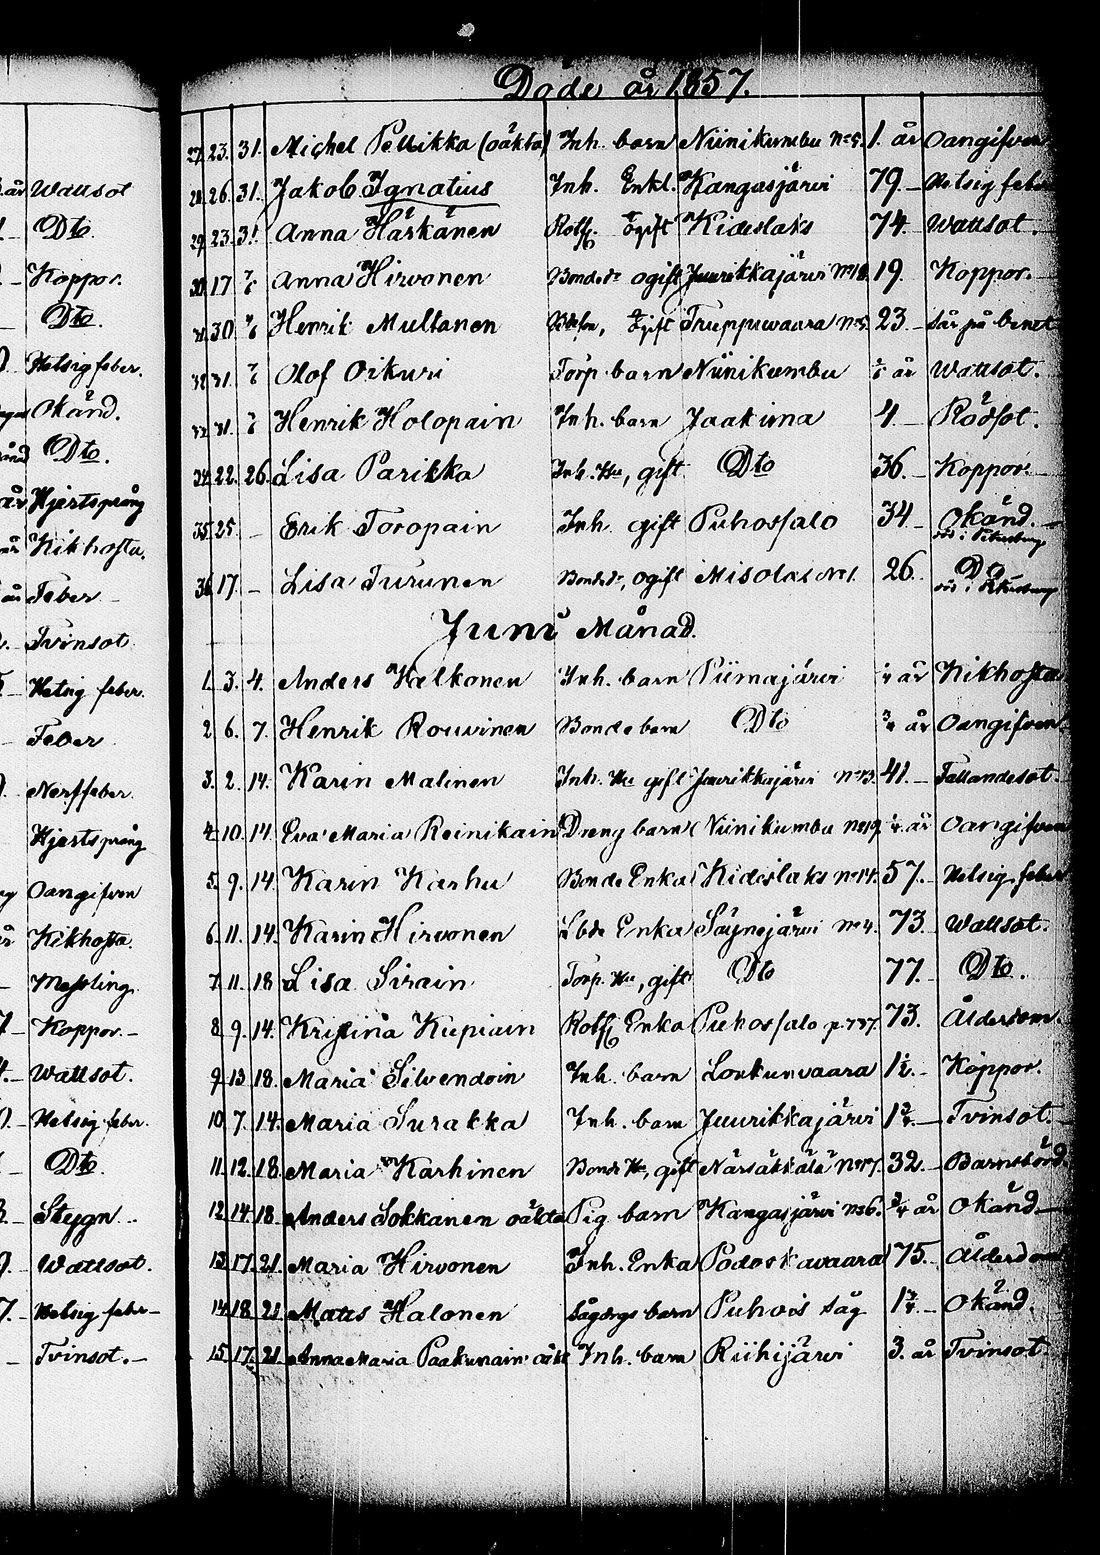 Döde år 1857.
27. 23. 31. Michel Pellikka (oäkta) Inh. barn Niinikumbu No 5. 1. år Oangifven
28. 26. 31. Jakob Ignatius Inh. Enkl. Kangasjärvi 79.- Helsig feber
29. 23. 31. Anna Härkänen Rotf. Egift Kideslaks 74.- Wattsot.
30. 17 Anna Hirvonen Bonded. ogift Juurikkajärvi No 18. 19. Koppor.-
31. 30. Henrik Multanen Egift Truppuwaara No 5. 23.- Sår på benet
32. 31. Olof Oikuri Torp. barn Niinikumbu år Wattsot.
33. 31. Henrik Holopain Inh. barn Jaakima 4.- Rödsot.
34. 22. 26. Lisa Parikka Inh. Hu, gift Dto 36.- Koppor.-
35. 25 - Erik Toropain Inh. gift Puhossalo 34.- Okänd.-
död i Petersburg
36. 17. - Lisa Turunen Bonded., ogift Misola No 1. 26. Do
död i Petersburg
Juni Månad.
1. 3. 4. Anders Walkonen Inh. barn Piimajärvi år Kikhosta
2 6. 7. Henrik Rouvinen Bonde barn Dto år Oangifven
3. 2. 14. Karin Malinen Inh. Hu gift Juurikkajärvi No 13. 41.- Fallandesot.
4. 10. 14. Eva Maria Reinikain Dreng barn Niinikumbu No 19. år Oangifven
5. 9. 14. Karin Karhu Bonde Enka Kideslaks No 14. 57.- Helsig feber
6. 11. 14. Karin Hirvonen Lbde Enka Säynejärvi No 4. 73.- Wattsot.
7. 11. 18 Lisa Sirain Torp. Hu, gift Dto 77.- Dto.
8. 9. 14. Kristina Kupiain Rotf. Enka Puhossalo p. 737. 73.- Ålderdom.
9. 13. 18. Maria Silvendoin Inh. barn Loukunvaara 1½.- Koppor.
10. 7. 14. Maria Surakka Inh. barn Juurikkajärvi 1¾.- Tvinsot.
11. 12. 18. Maria Karhinen Bonde Hu, gift Närsäkkälä No 17. 32.- Barnsbörd.
12. 14. 18. Anders Sokkanen oäkta Pig barn Kangasjärvi No 6. ¾ år Okänd.
13. 17. 21. Maria Hirvonen Inh. Enka Podoskavaara 75.- Ålderdom
14. 18. 21. Matts Halonen Sågdrgs barn Puhois Såg Okänd.
15. 17. 21. Anna Maria Paakunain oäkt Inh. barn Riihijärvi 3. år Tvinsot.
Wattsot
Dto.
Koppor.
Dto.
Helsig feber.
Okänd.
Dto.
Hjertsprång
Kikhosta.
Feber -
Tvinsot
Helsig feber.
Feber
Nerffeber.
Hjertsprång
Oangifven
Kikhosta.
Messling.
Koppor.-
Wattsot.
Helsig feber.
Dto.
Stygn.
Wattsot.
Helsig feber-
Tvinsot.-